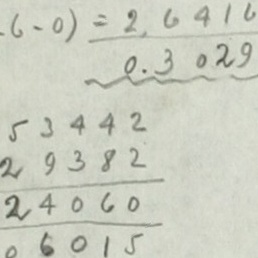 .6-0) = 2.6416
0.3029
53442
29382
24060
06015